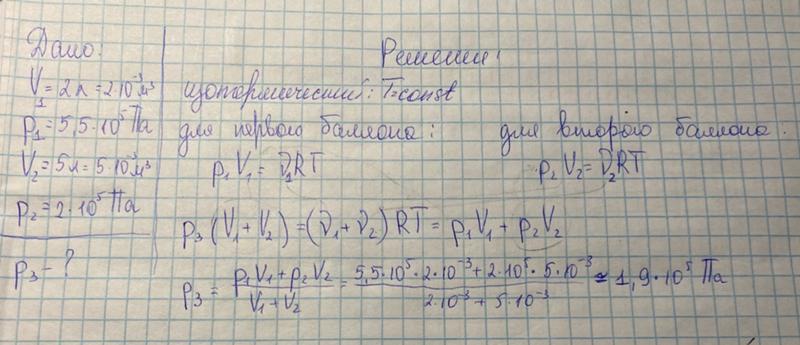 Дано:
V₁ = 2л = 2·10⁻³ м³
p₁ = 5,5·10⁵ Па
V₂ = 5л = 5·10⁻³ м³
p₂ = 2·10⁵ Па
p₃ - ?
Решение:
изотермический: T=const
для первого баллона: для второго баллона.
p₁V₁ = ν₁RT p₂V₂ = ν₂RT
p₃(V₁+V₂) = (ν₁+ν₂)RT = p₁V₁ + p₂V₂
p₃ = (p₁V₁+p₂V₂)/(V₁+V₂) = (5,5·10⁵·2·10⁻³+2·10⁵·5·10⁻³)/(2·10⁻³+5·10⁻³) ≈ 1,9·10⁵ Па